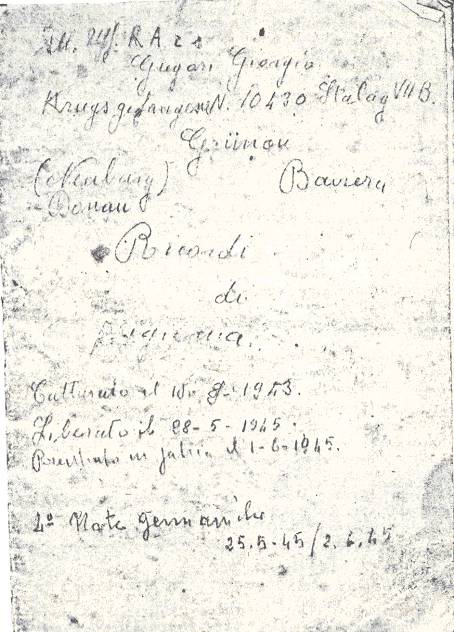 R A
Giorgio
N. 10430 Stalag VII B.
Grünau
(Neuburg) Baviera
Donau
Ricordi
di
prigionia.
Catturato il 1943.
Liberato il 28-5-1945
in il 1-6-1945.
4° Note Germaniche
25.5.45/2.6.45